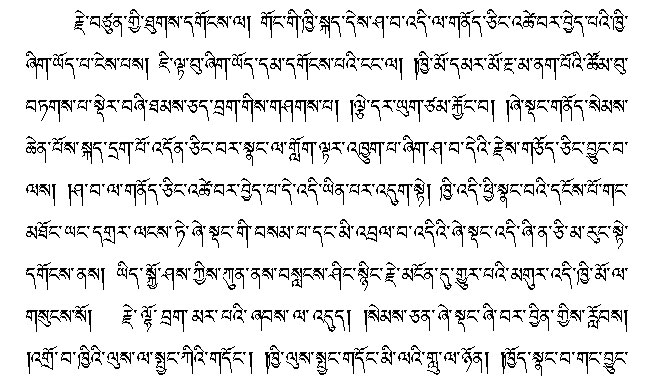 རྗེ་བཙུན་གྱི་ཐུགས་དགོངས་ལ། གོང་གི་ཁྱི་སྐད་དེས་ཤ་བ་འདི་ལ་གནོད་ཅིང་འཚེ་བར་བྱེད་པའི་ཁྱི་
ཞིག་ཡོད་པ་ངེས་པས། ཇི་ལྟ་བུ་ཞིག་ཡོད་དམ་དགོངས་པའི་ངང་ལ། །ཁྱི་མོ་དམར་མོ་རྔ་མ་ནག་པོའི་ཚོམ་བུ་
བཏགས་པ་སྡེར་བཞི་ཐམས་ཅད་བྲག་གིས་གཤགས་པ། །ལྕེ་དར་ཡུག་ཙམ་རྐྱོང་བ། །ཞེ་སྡང་གནོད་སེམས་
ཆེན་པོས་སྐད་དྲག་པོ་འདོན་ཅིང་བར་སྣང་ལ་གློག་ལྟར་འཁྱུག་པ་ཞིག་ཤ་བ་དེའི་རྗེས་གཅོད་ཅིང་བྱུང་བ་
ལས། །ཤ་བ་ལ་གནོད་ཅིང་འཚེ་བར་བྱེད་པ་དེ་འདི་ཡིན་པར་འདུག་སྟེ། ཁྱི་འདི་ཕྱི་སྣང་བའི་དངོས་པོ་གང་
མཐོང་ཡང་དགྲར་ལངས་ཏེ་ཞེ་སྡང་གི་བསམ་པ་དང་མི་འབྲལ་བ་འདིའི་ཞེ་སྡང་འདི་ཞི་ན་ཅི་མ་རུང་སྟེ་
དགོངས་ནས། ཡིད་སྐྱོ་ཤས་ཀྱིས་ཀུན་ནས་བསླངས་ཤིང་སྙིང་རྗེ་མངོན་དུ་གྱུར་པའི་མགུར་འདི་ཁྱི་མོ་ལ་
གསུངས་སོ། རྗེ་ལྷོ་བྲག་མར་པའི་ཞབས་ལ་འདུད། །སེམས་ཅན་ཞེ་སྡང་ཞི་བར་བྱིན་གྱིས་རློབས།
།འགྲོ་བ་ཁྱིའི་ལུས་ལ་སྤྱང་ཀིའི་གདོང་། །ཁྱི་ལུས་སྤྱང་གདོང་མི་ལའི་གླུ་ལ་ཉོན། །ཁྱོད་སྣང་བ་གང་བྱུང་